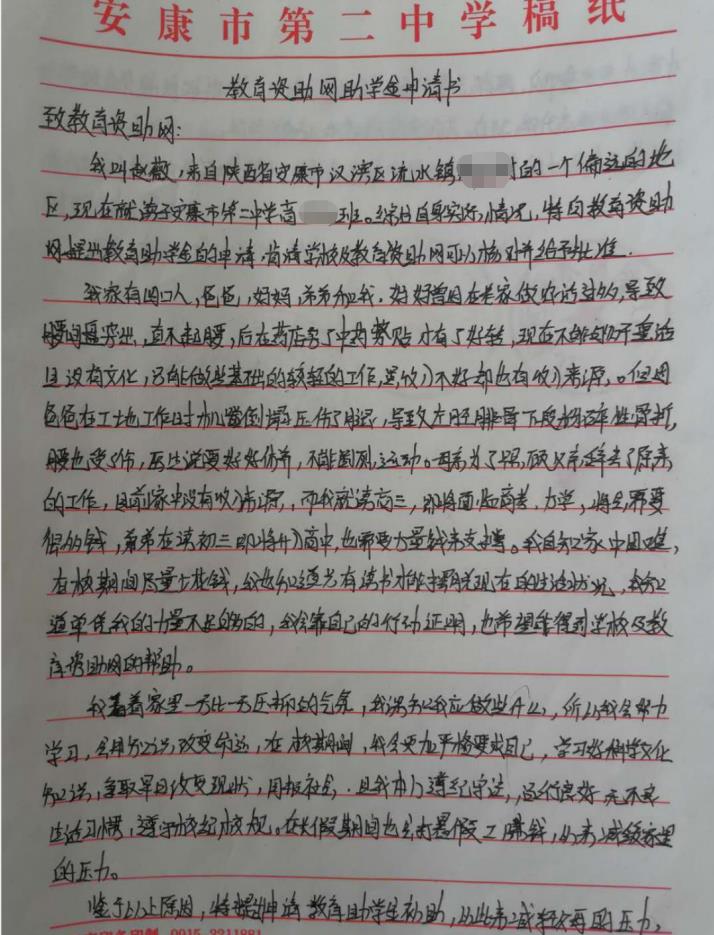 安康市第二中学稿纸
教育资助网助学金申请书
致教育资助网：
我叫赵敏，来自陕西省安康市汉滨区流水镇 村的一个偏远的地
区，现在就读于安康市第二中学高 班。综合自身实际情况，特向教育资助
网提出教育助学金的申请，肯请学校及教育资助网可以核对并给予批准。
我家有四口人，爸爸，妈妈，弟弟和我。妈妈曾因在老家做农活过多，导致
腰间盘突出，直不起腰，后在药店買了中药敷贴才有了好转，现在不能够干重活
且没有文化，只能做些基础的较轻的工作，虽收入不好却也有收入来源。但因
爸爸在工地工作时机器倒塌压伤了腿，导致左胫腓骨下段粉碎性骨折，
腰也受了伤，医生说要好好休养，不能剧烈运动。母亲为了照顾父亲辞去了原来
的工作，目前家中没有收入来源，而我就读高三，即将面临高考，大学，将会需要
很多钱，弟弟在读初三即将升入高中，也需要大量钱来支撑。我自知家中困难，
在校期间尽量少花钱，我也知道只有读书才能摆脱现在的生活状况，我知
道单凭我的力量不足够的，我会靠自己的行动证明，也希望能得到学校及教
育资助网的帮助。
我看着家里一天比一天压抑的气氛，我深知我应做些什么，所以我会努力
学习，会用知识改变命运，在校期间，我会更加严格要求自己，学习好科学文化
知识，争取早日改变现状，回报社会。且我本人遵纪守法，品行良好无不良
生活习惯，遵守校纪校规。在长假期间也会打暑假工赚钱，以来减缓家里
的压力。
鉴于以上原因，特提出申请教育助学生补助，以此来减轻父母的压力，
0915-3211881